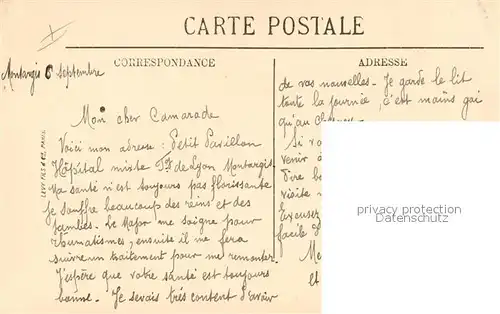 CARTE POSTALE
CORRESPONDANCE
ADRESSE
Montargis 6 Septembre
Mon cher Camarade
Voici mon adresse : Petit Pavillon
Hôpital mixte Fg de Lyon Montargis
Ma santé n'est toujours pas florissante
Je souffre beaucoup des reins et des
jambes - Le Major me soigne pour
rhumatismes, ensuite il me fera
suivre un traitement pour me remonter.
J'espère que votre santé est toujours
bonne - Je serais très content d'avoir
de vos nouvelles - Je garde le lit
toute la journée, c'est moins gai
qu'au
Si vo
venir à
Vive
visite
Excuser
facile
Me
et
LEVY FILS & Cie, PARIS
privacy protection